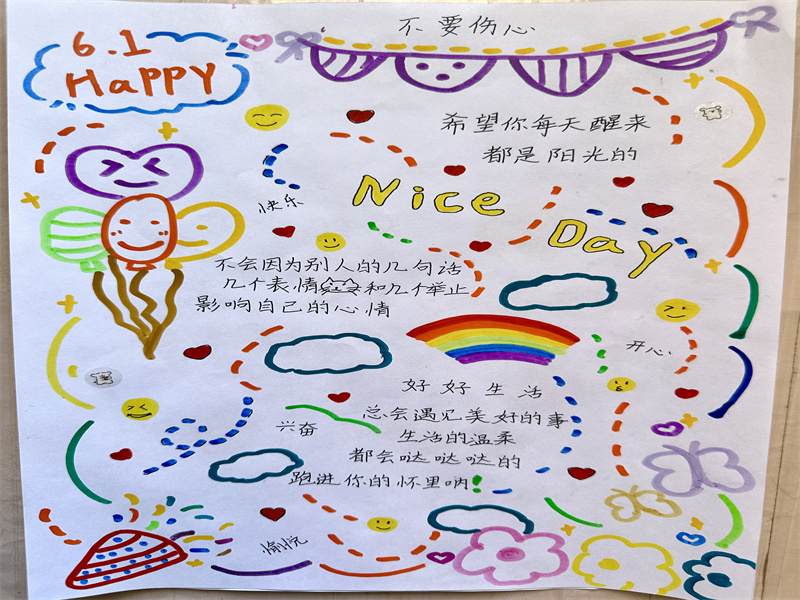 不要伤心
6.1
HaPPY
希望你每天醒来
都是阳光的
Nice
Day
快乐
不会因为别人的几句话
几个表情和几个举止
影响自己的心情
开心
好好生活
总会遇见美好的事
生活的温柔
都会哒哒哒的
跑进你的怀里呐!
兴奋
愉悦